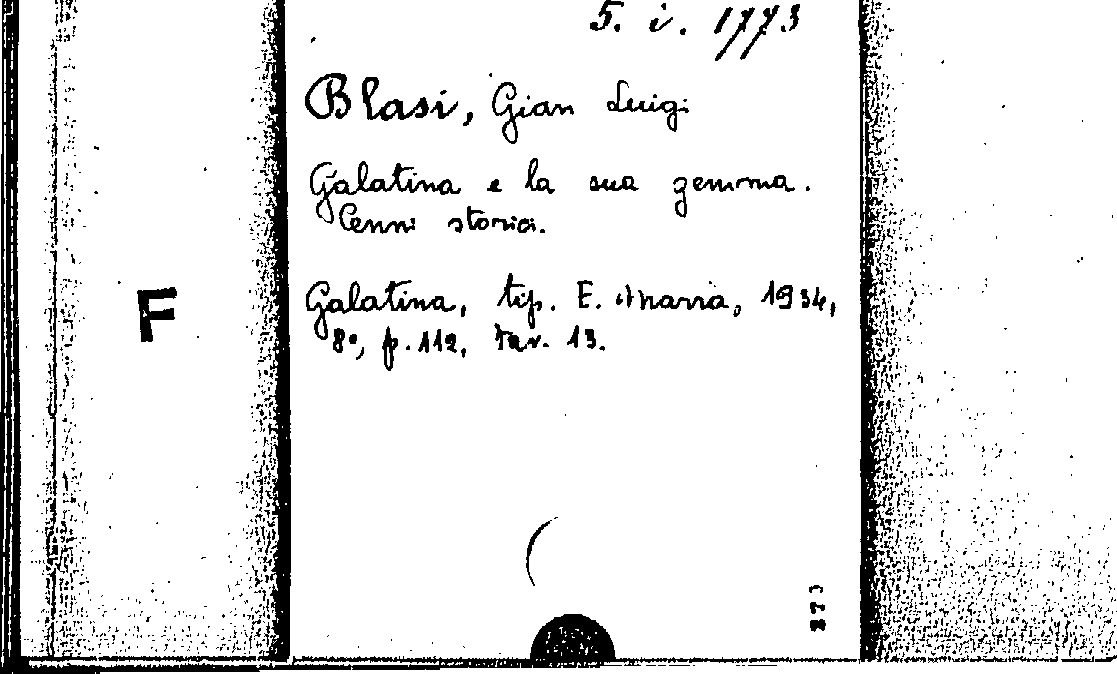 5. i. 1773
Blasi, Gian Luigi
Galatina e la sua gemma.
Cenni storici.
F
Galatina, tip. E. Marra, 1934,
8°, p. 112, tav. 13.
873